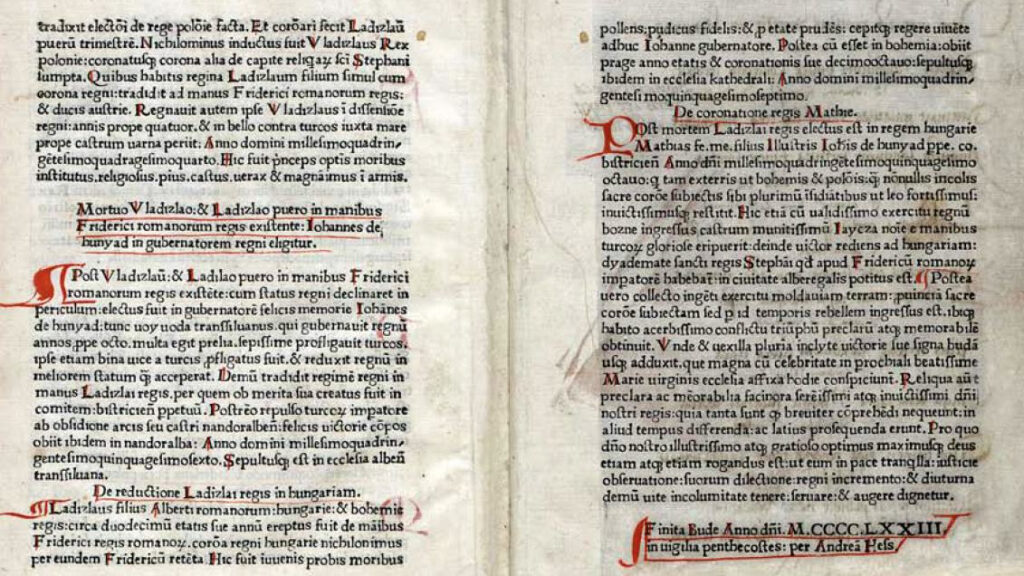 traduxit electoī de rege poloīe facta. Et coroāri fecit Ladizlaū
puerū trimestrē. Nichilominus inductus fuit Vladizlaus Rex
polonie: coronatusqꝫ corona alia de capite reliqaꝝ scī Stephani
sumpta. Quibus habitis regina Ladizlaum filium simul cum
corona regni: tradidit ad manus Friderici romanorum regis:
& ducis austrie. Regnauit autem ipse Vladizlaus ī dissensiōe
regni: annis prope quatuor. & in bello contra turcos iuxta mare
prope castrum uarna periit: Anno domini millesimoquadrin,
gētesimoquadragesimoquarto. Hic fuit ṗnceps optis moribus
institutus. religiosus. pius. castus. uerax & magnāimus ī armis.
Mortuo Vladizlao: & Ladizlao puero in manibus
Friderici romanorum regis existente: Iohannes de
hunyad in gubernatorem regni eligitur.
Post Vladizlaū: & Ladilao puero in manibus Friderici
romanorum regis existēte: cum status regni declinaret in
periculum: electus fuit in gubernatorē felicis memorie Iohānes
de hunyad: tunc uoy uoda transsiluanus. qui gubernauit regnū
annos. ꝓpe octo. multa egit prelia. sepissime profligauit turcos.
ipse etiam bina uice a turcis ꝓfligatus fuit. & reduxit regnū in
meliorem statum qꝫ acceperat. Demū tradidit regimē regni in
manus Ladizlai regis. per quem ob merita sua creatus fuit in
comitem: bistricieñ ppetuū. Postrēo repulso turcoꝝ impatore
ab obsidione arcis seu castri nandoralbeñ: felicis uictorie cōpos
obiit ibidem in nandoralba: Anno domini millesimoquadrin,
gentesimoquinquagesimosexto. Sepultusqꝫ est in ecclesia albeñ
transsiluana.
De reductione Ladizlai regis in hungariam.
Ladizlaus filius Alberti romanorum: hungarie: & bohemie
regis: circa duodecimū etatis sue annū ereptus fuit de māibus
Friderici regis romanoꝝ. corōa regni hungarie nichilonimus
per eundem Fridericū retēta. Hic fuit iuuenis probis moribus
pollens: pudicus fidelis: & ꝓ etate prudēs: cepitqꝫ regere uiuēte
adhuc Iohanne gubernatore. Postea cū esset in bohemia: obiit
prage anno etatis & coronationis sue decimooctauo: sepultusqꝫ
ibidem in ecclesia kathedrali: Anno domini millesimoquadrin,
gentesimoquinquagesimoseptimo.
De coronatione regis Mathie.
Post mortem Ladizlai regis electus est in regem hungarie
Mathias fe. me. filius Illustris Iohīs de huny ad ppe. co.
bistricieñ Anno dñi millesimoquadringētesimoquinquagesimo
octauo: q tam exterris ut bohemis & polōis: qꝫ nōnullis incolis
sacre corōe subiectis sibi plurimū īsidiātibus ut leo fortissimus:
inuictissimusqꝫ restitit. Hic etiā cū ualidissimo exercitu regnū
bozne ingressus castrum munitissimū Iaycza noīe e manibus
turcoꝝ gloriose eripuerit: deinde uictor rediens ad hungariam:
dyademate sancti regis Stephāi qd apud Fridericū romanoꝝ
impatorē habebat: in ciuitate alberegalis potitus est. Postea
uero collecto ingēti exercitu moldauiam terram: ꝓuinciā sacre
corōe subiectam sed p id temporis rebellem ingressus est. ibiqꝫ
habito acerbissimo conflictu triūphū preclarū atqꝫ memorabilē
obtinuit. Vnde & uexilla pluria inclyte uictorie sue signa budā
usqꝫ adduxit. que magna cū celebritate in prochiali beatissime
Marie uirginis ecclesia affixa hodie conspiciunt. Reliqua aūt
preclara ac mēorabilia facinora serēissimi atqꝫ inuictissimi dñi
nostri regis: quia tanta sunt qꝫ breuiter cōprehēdi nequeunt: in
aliud tempus differenda: ac latius prosequenda erunt. Pro quo
dño nostro illustrissimo atqꝫ gratioso optimus maximusqꝫ deus
etiam atqꝫ etiam rogandus est: ut eum in pace tranqlla: iusticie
obseruatione: suorum dilectione: regni incremento: & diuturna
demū uite incolumitate tenere: seruare: & augere dignetur.
Finita Bude Anno dñi. M.CCCC.LXXIII.
in uigilia penthecostes: per Andreā Hess.